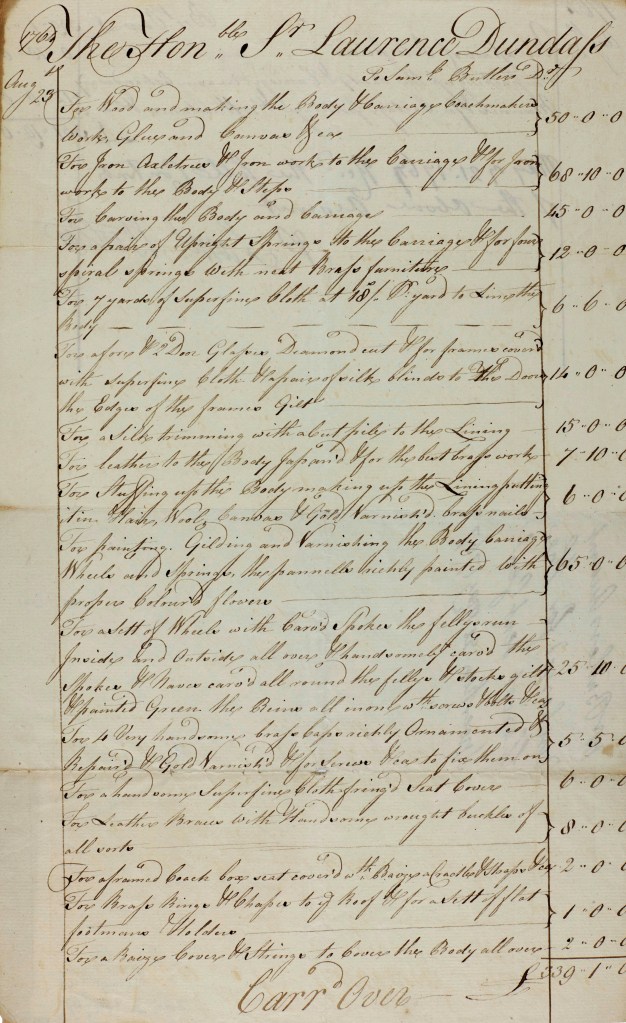 1763 The Hon.ble Sr. Laurence Dundass
Aug 23d To Saml. Butler Dr
For Wood and making the Body & Carriage Coachmakers
Work, Glue and Canvas &ca 50-0-0
For Iron Axletrees & Iron work to the Carriage & for Iron
work to the Body & Steps 68-10-0
For Carving the Body and Carriage 45-0-0
For a pair of Upright Springs to the Carriage & for four
spiral springs with neat Brass furniture 12-0-0
For 7 yards of Superfine Cloth at 18/ Pr. yard to Line the
Body 6-6-0
For a fore & 2 Door Glasses Diamond cut & for frames cover'd
with superfine Cloth & a pair of silk blinds to The Doors
the Edges of the frames Gilt 14-0-0
For a Silk trimming with a Cut pile to the Lining 15-0-0
For leather to the Body Japand & for the but brass work 7-10-0
For Stuffing up the Body making up the Lining putting
it in Hair, Wool, Canvas & Gold Varnish'd brass nails 6-0-0
For painting. Gilding and Varnishing the Body Carriage
Wheels and Springs, the pannells richly painted with
proper Colour'd flowers 65-0-0
For a Sett of Wheels with Carv'd Spokes the fellys run
Inside and Outside all over & handsomely carv'd the
Spokes & Naves carv'd all round the fellys & stocks gilt
& painted Green the Bens all in one wth. screws & bolts &ca 25-10-0
For 4 Very handsome brass caps richly Ornamented &
Repair'd & Gold Varnish'd & for Screws &ca to fix them on 5-5-0
For a handsome Superfine Cloth fring'd Seat Cover 6-0-0
For Leather Braces With Handsome wrought buckles of
all sorts 8-0-0
For a framed Coach box seat cover'd wth. Baize a Cradle & straps &ca 2-0-0
For Brass Rings & Chapes to ye Roof & for a Sett of flat
footmans Holders 1-0-0
For a Baize Cover & Strings to Cover the Body all over 2-0-0
Carr'd Over £339-1-0